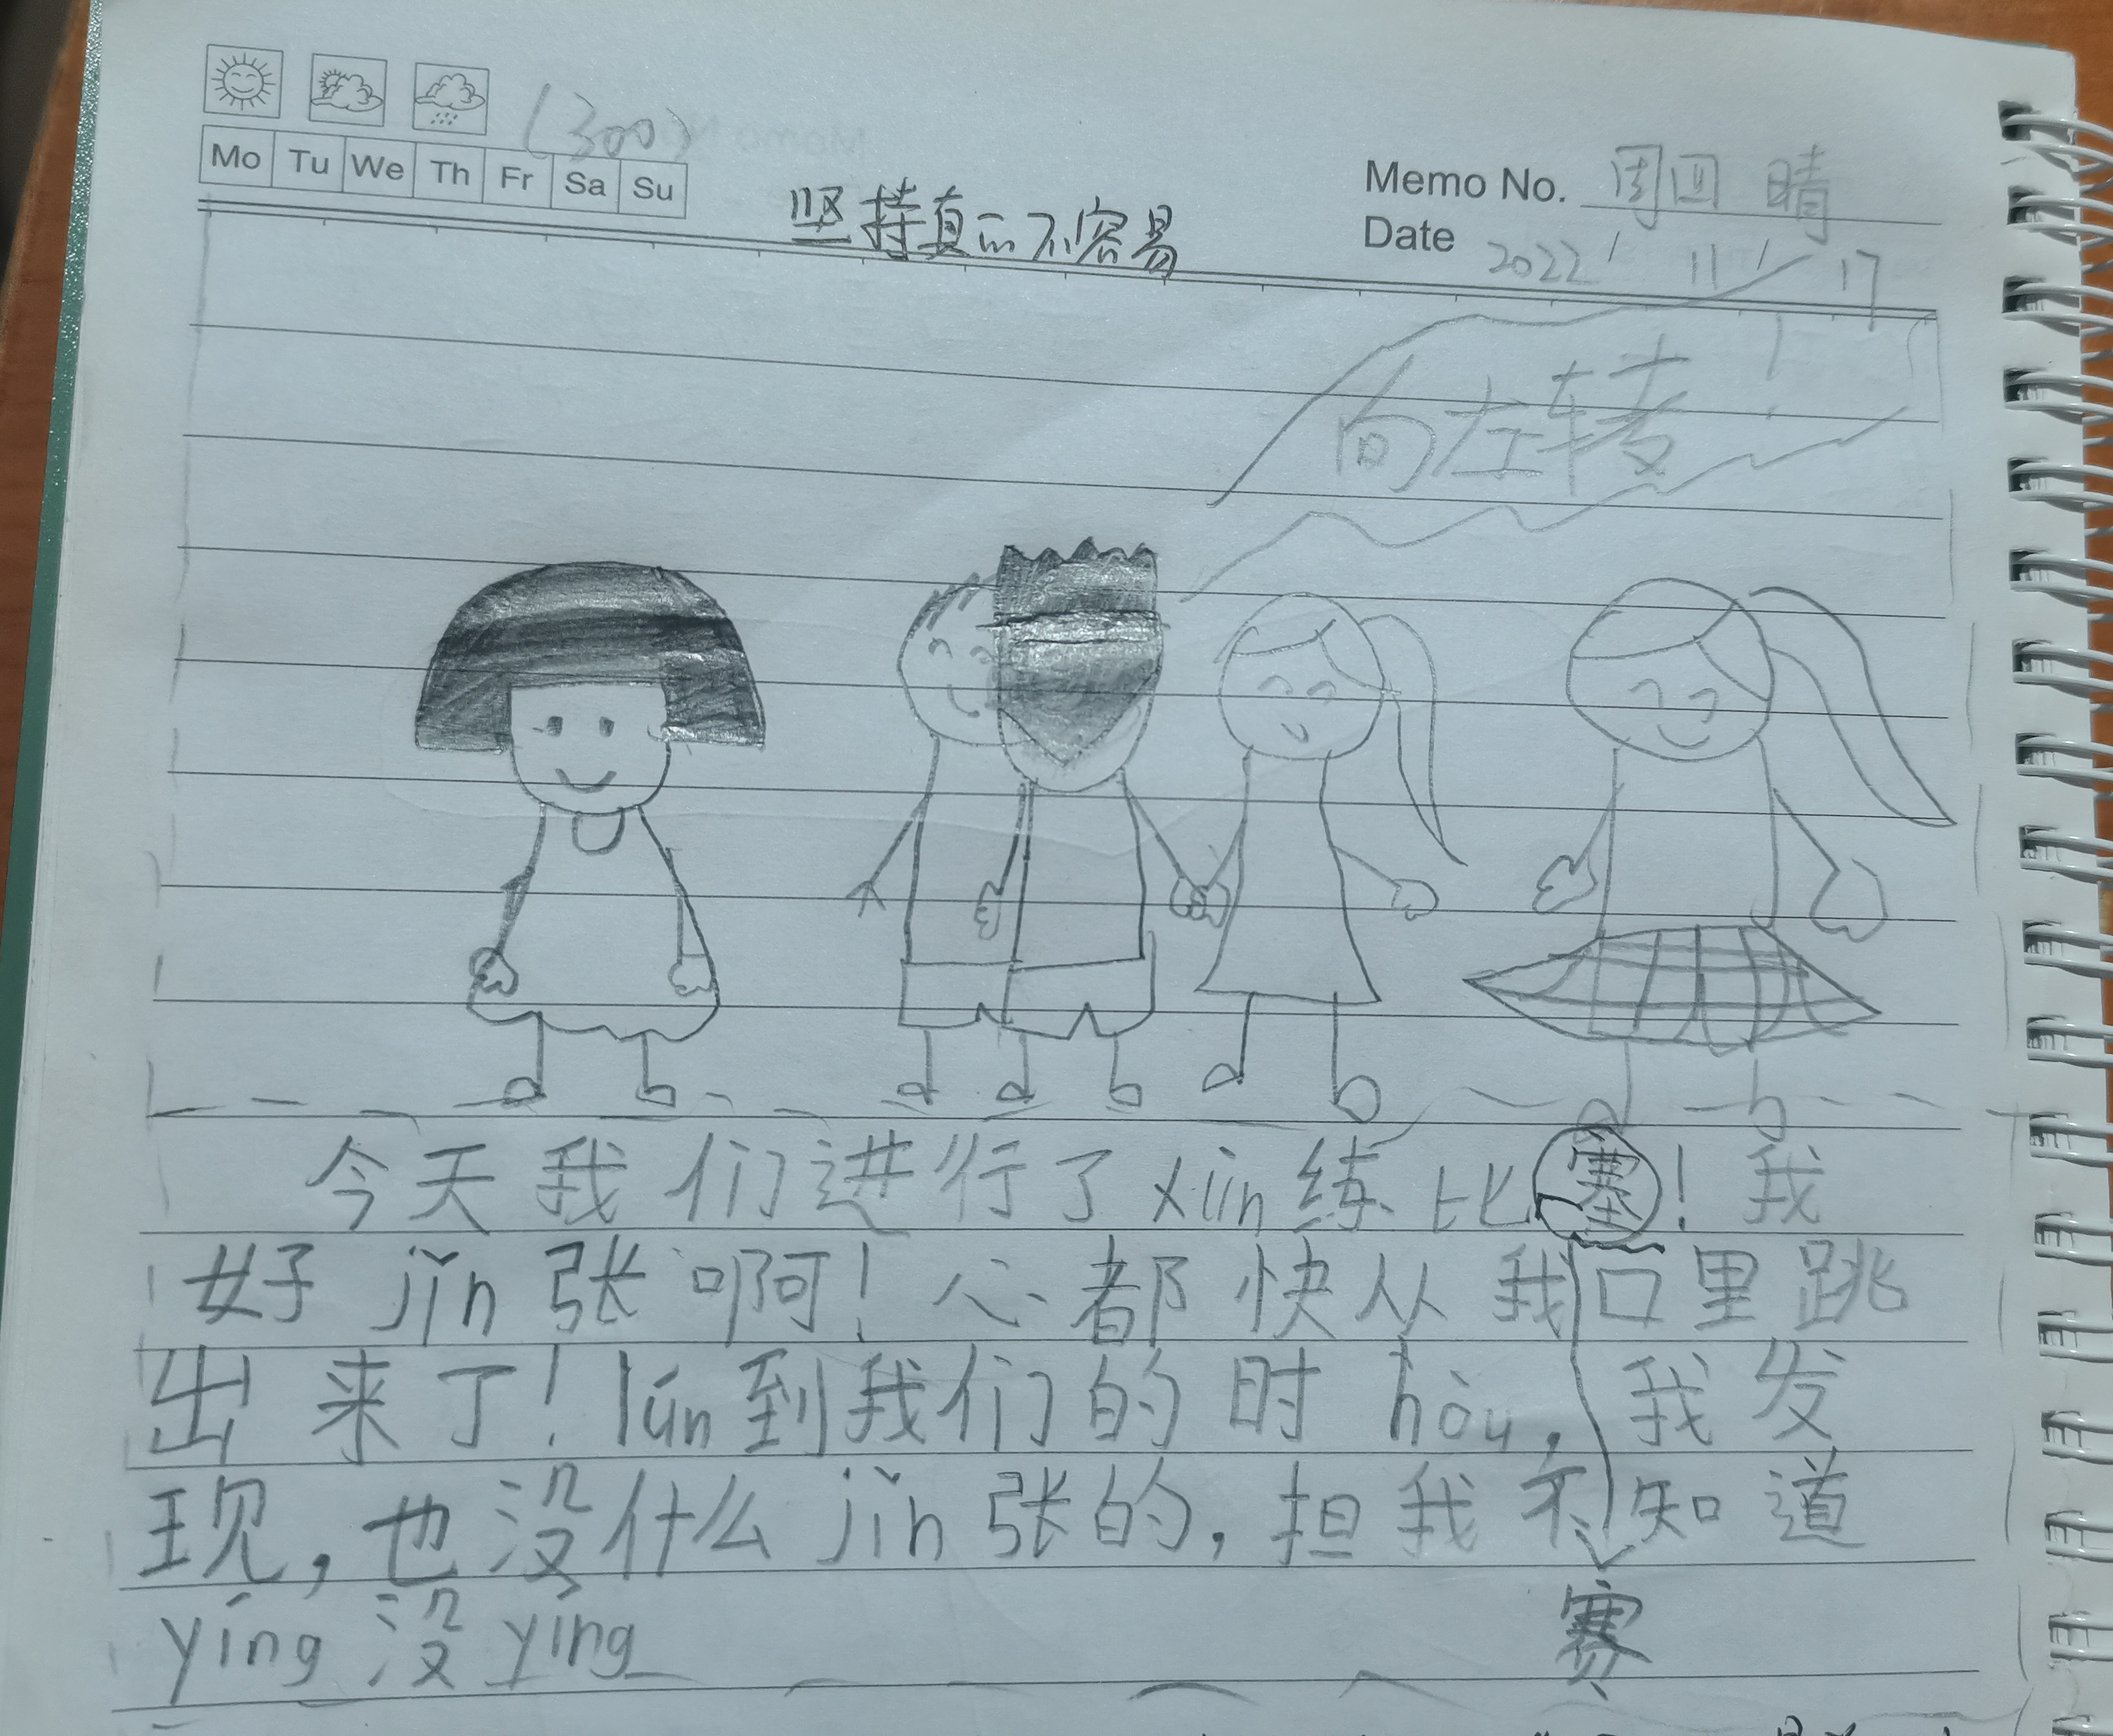 (300)
Mo Tu We Th Fr Sa Su
Memo No. 周四 晴
坚持真的不容易
Date 2022 / 11 / 17
向左转!
今天我们进行了xùn练比塞!我
好jǐn张啊!心都快从我口里跳
出来了!lún到我们的时hòu,我发
现,也没什么jǐn张的,担我不知道
yíng没yíng
赛